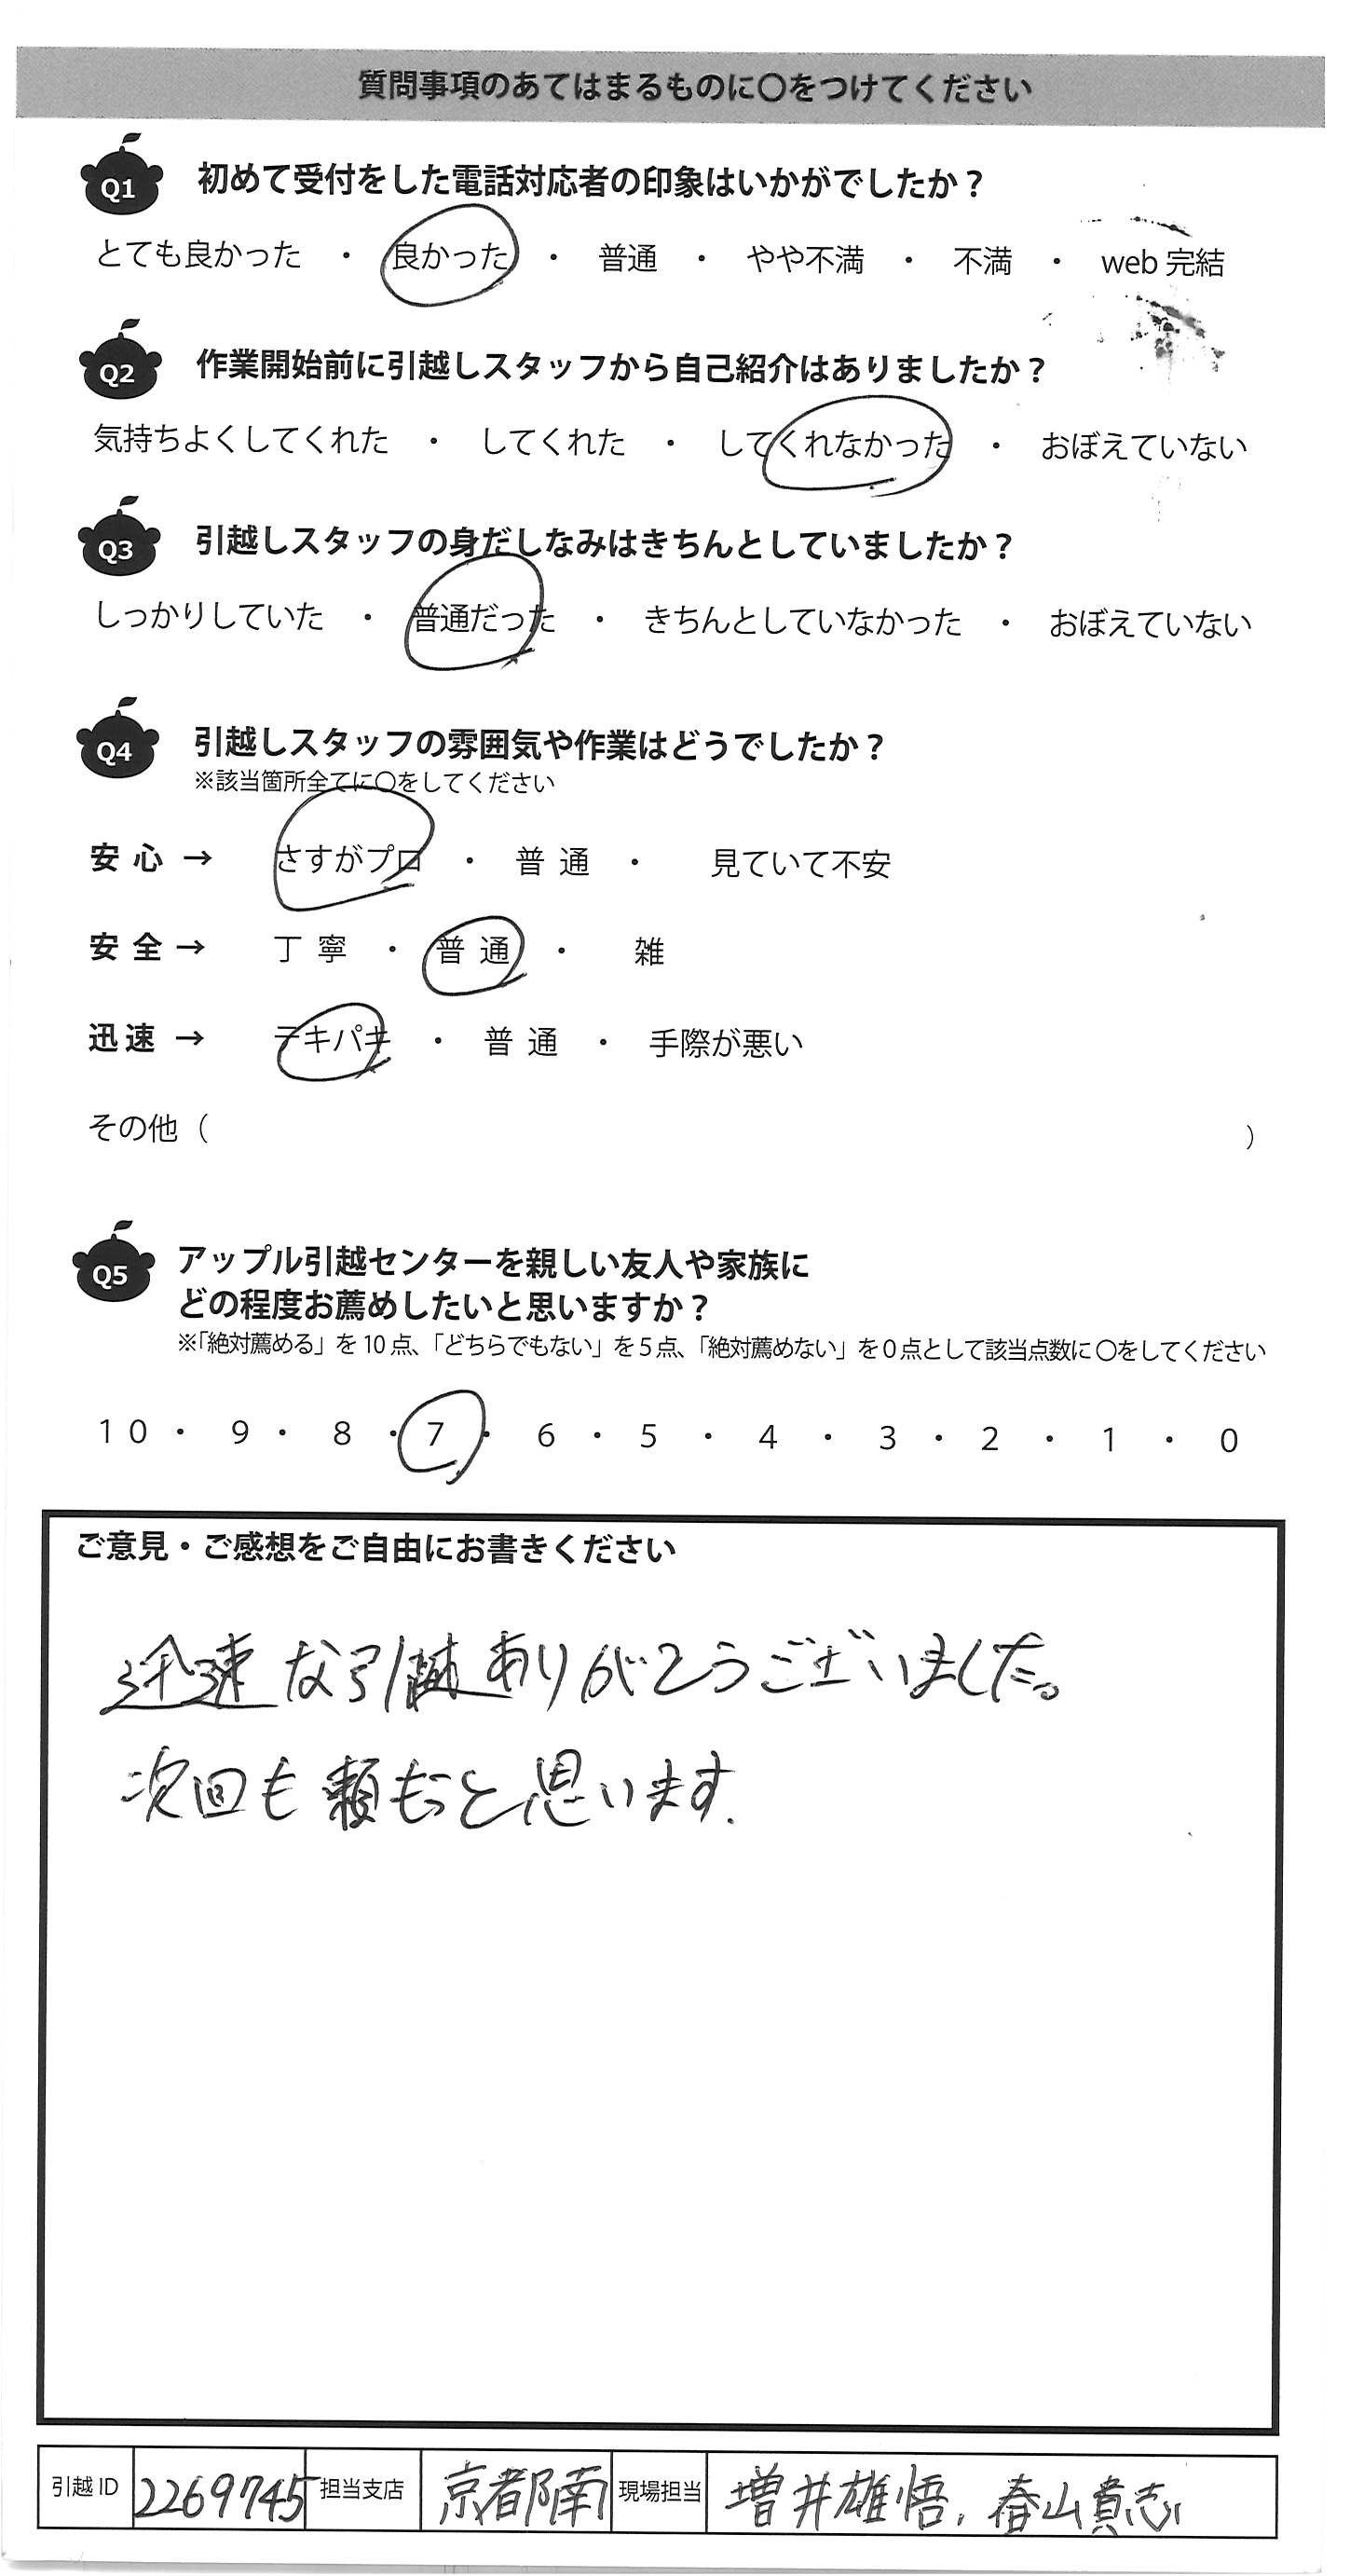 質問事項のあてはまるものに〇をつけてください
Q1 初めて受付をした電話対応者の印象はいかがでしたか？
とても良かった ・ 良かった ・ 普通 ・ やや不満 ・ 不満 ・ web 完結
Q2 作業開始前に引越しスタッフから自己紹介はありましたか？
気持ちよくしてくれた ・ してくれた ・ してくれなかった ・ おぼえていない
Q3 引越しスタッフの身だしなみはきちんとしていましたか？
しっかりしていた ・ 普通だった ・ きちんとしていなかった ・ おぼえていない
Q4 引越しスタッフの雰囲気や作業はどうでしたか？
※該当箇所全てに〇をしてください
安心 → さすがプロ ・ 普通 ・ 見ていて不安
安全 → 丁寧 ・ 普通 ・ 雑
迅速 → テキパキ ・ 普通 ・ 手際が悪い
その他（ ）
Q5 アップル引越センターを親しい友人や家族に
どの程度お薦めしたいと思いますか？
※「絶対薦める」を10点、「どちらでもない」を5点、「絶対薦めない」を0点として該当点数に〇をしてください
10 ・ 9 ・ 8 ・ 7 ・ 6 ・ 5 ・ 4 ・ 3 ・ 2 ・ 1 ・ 0
ご意見・ご感想をご自由にお書きください
迅速な引越ありがとうございました。
次回も頼もうと思います.
引越ID 2269745 担当支店 京都南 現場担当 増井雄悟, 春山貴志